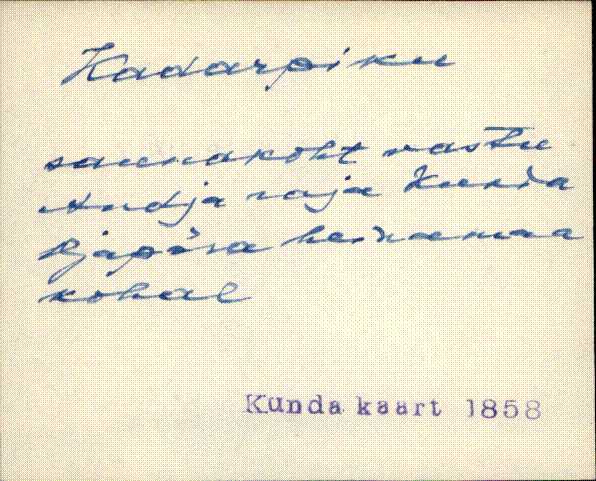 Kadarpiku
saunakoht vastu
Andja raja Kunda
Ojapära heinamaa
kohal
Kunda kaart 1858